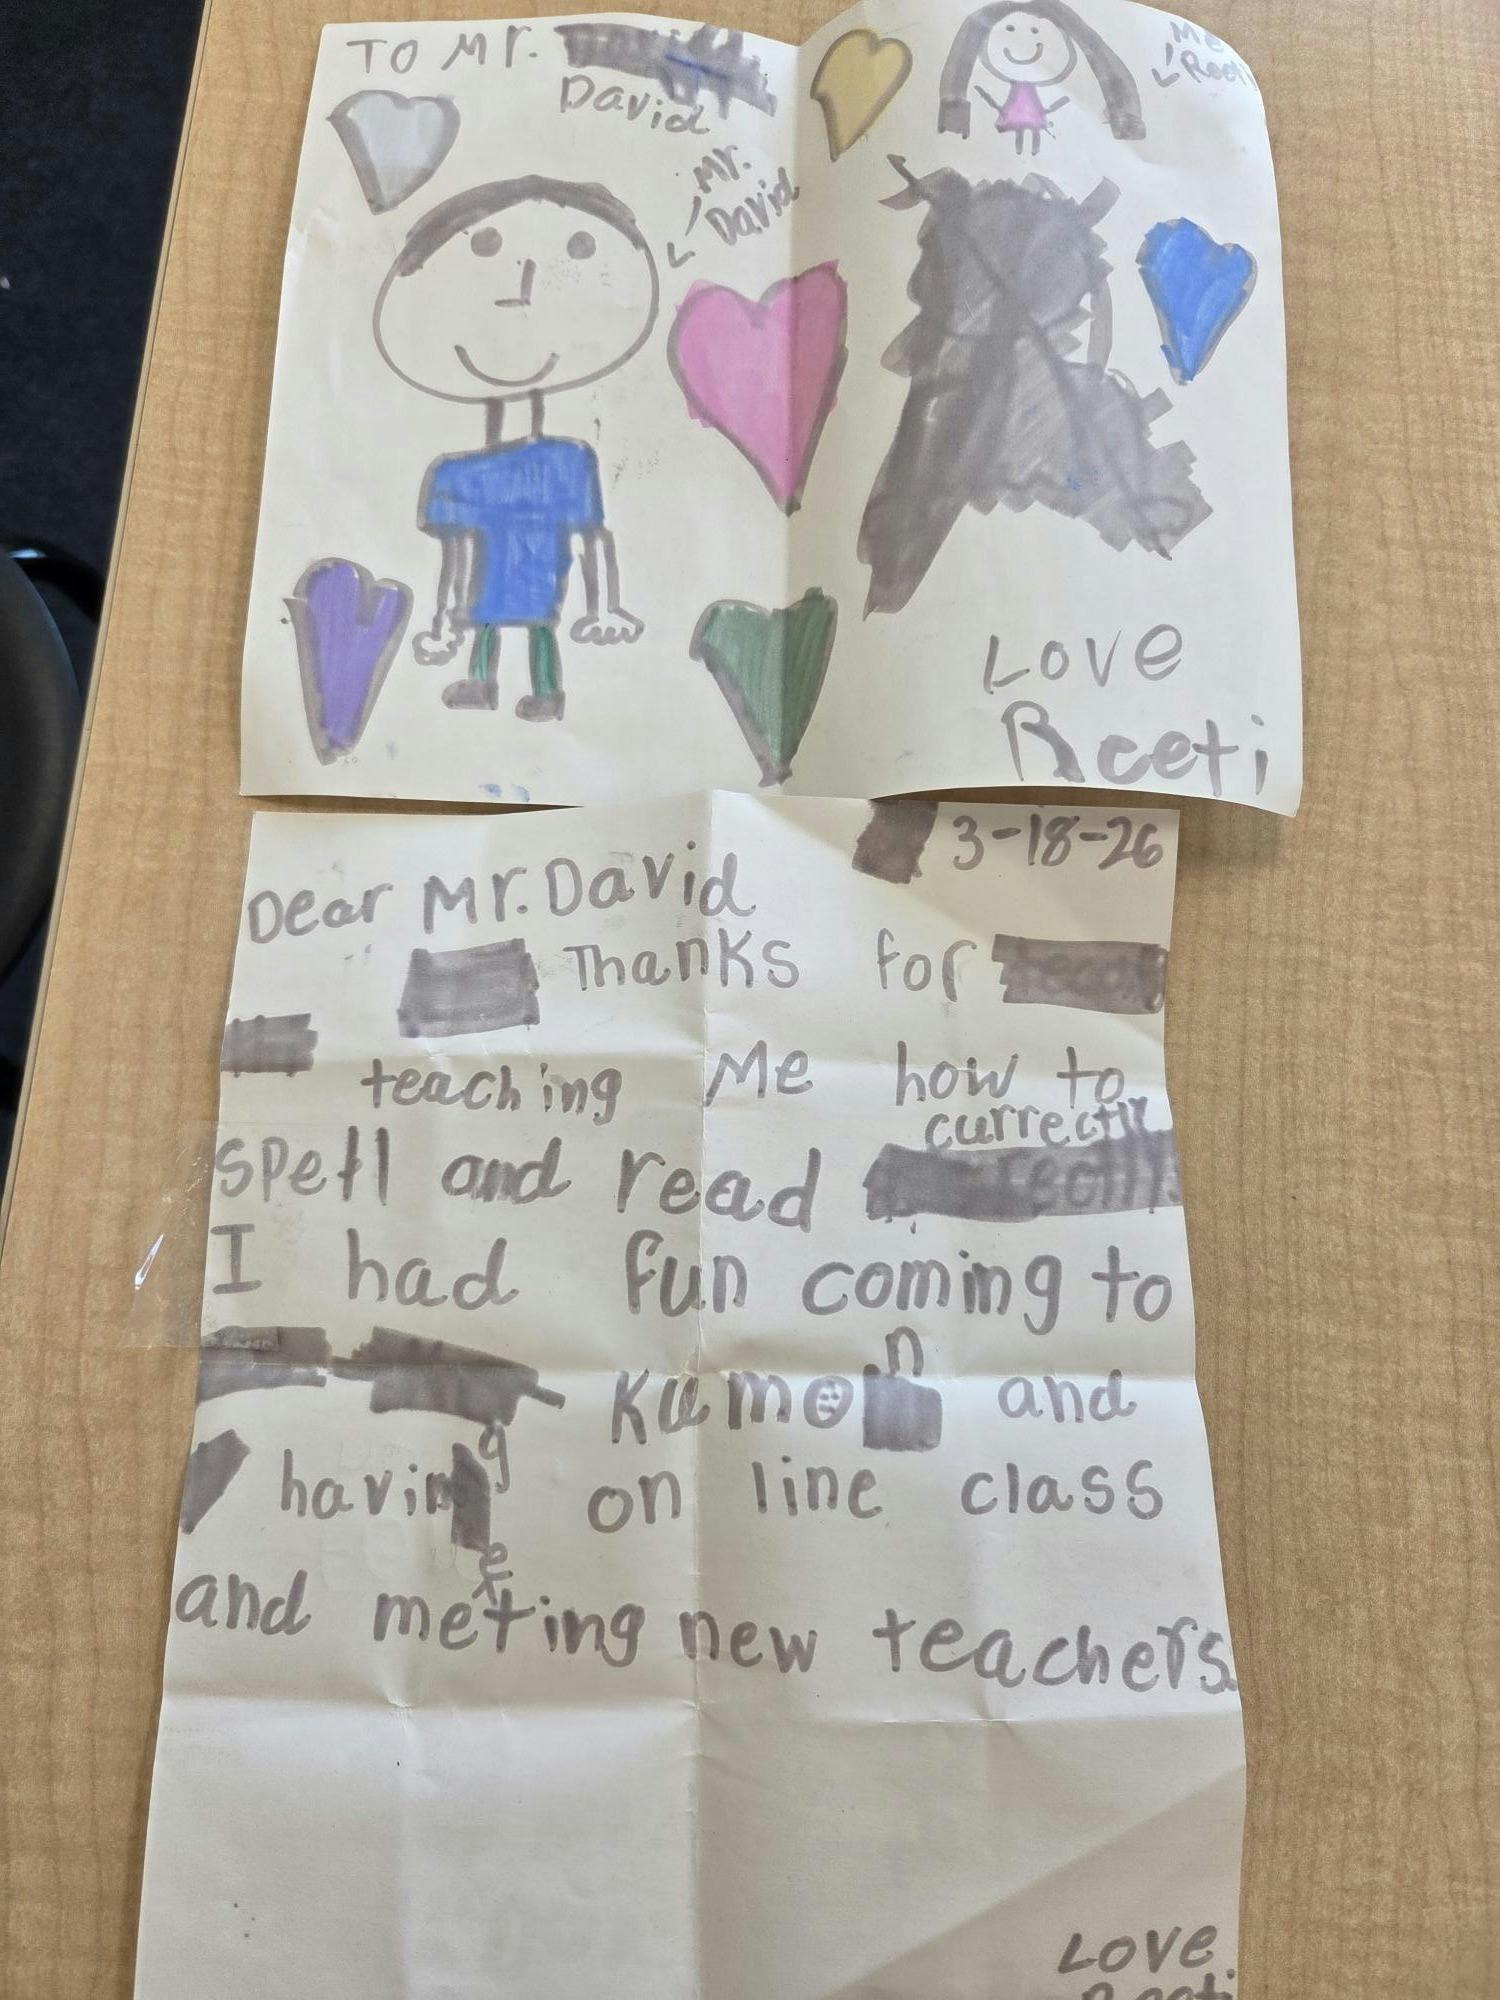 TO Mr.
David
Mr.
David
Me
Love
Reeti
3-18-26
Dear Mr. David
Thanks for
teaching Me how to
currectly
spell and read
I had fun coming to
n
Kumo and
g
havin on line class
e
and meting new teachers.
Love